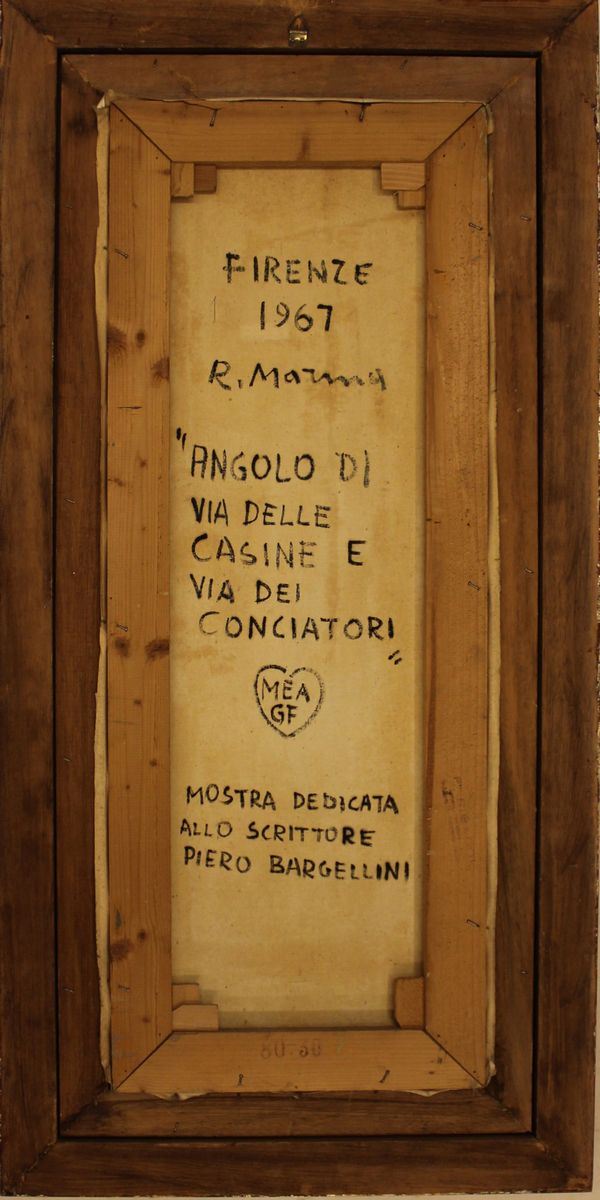 FIRENZE
1967
R. Marma
"ANGOLO DI
VIA DELLE
CASINE E
VIA DEI
CONCIATORI"
MEA
GF
MOSTRA DEDICATA
ALLO SCRITTORE
PIERO BARGELLINI